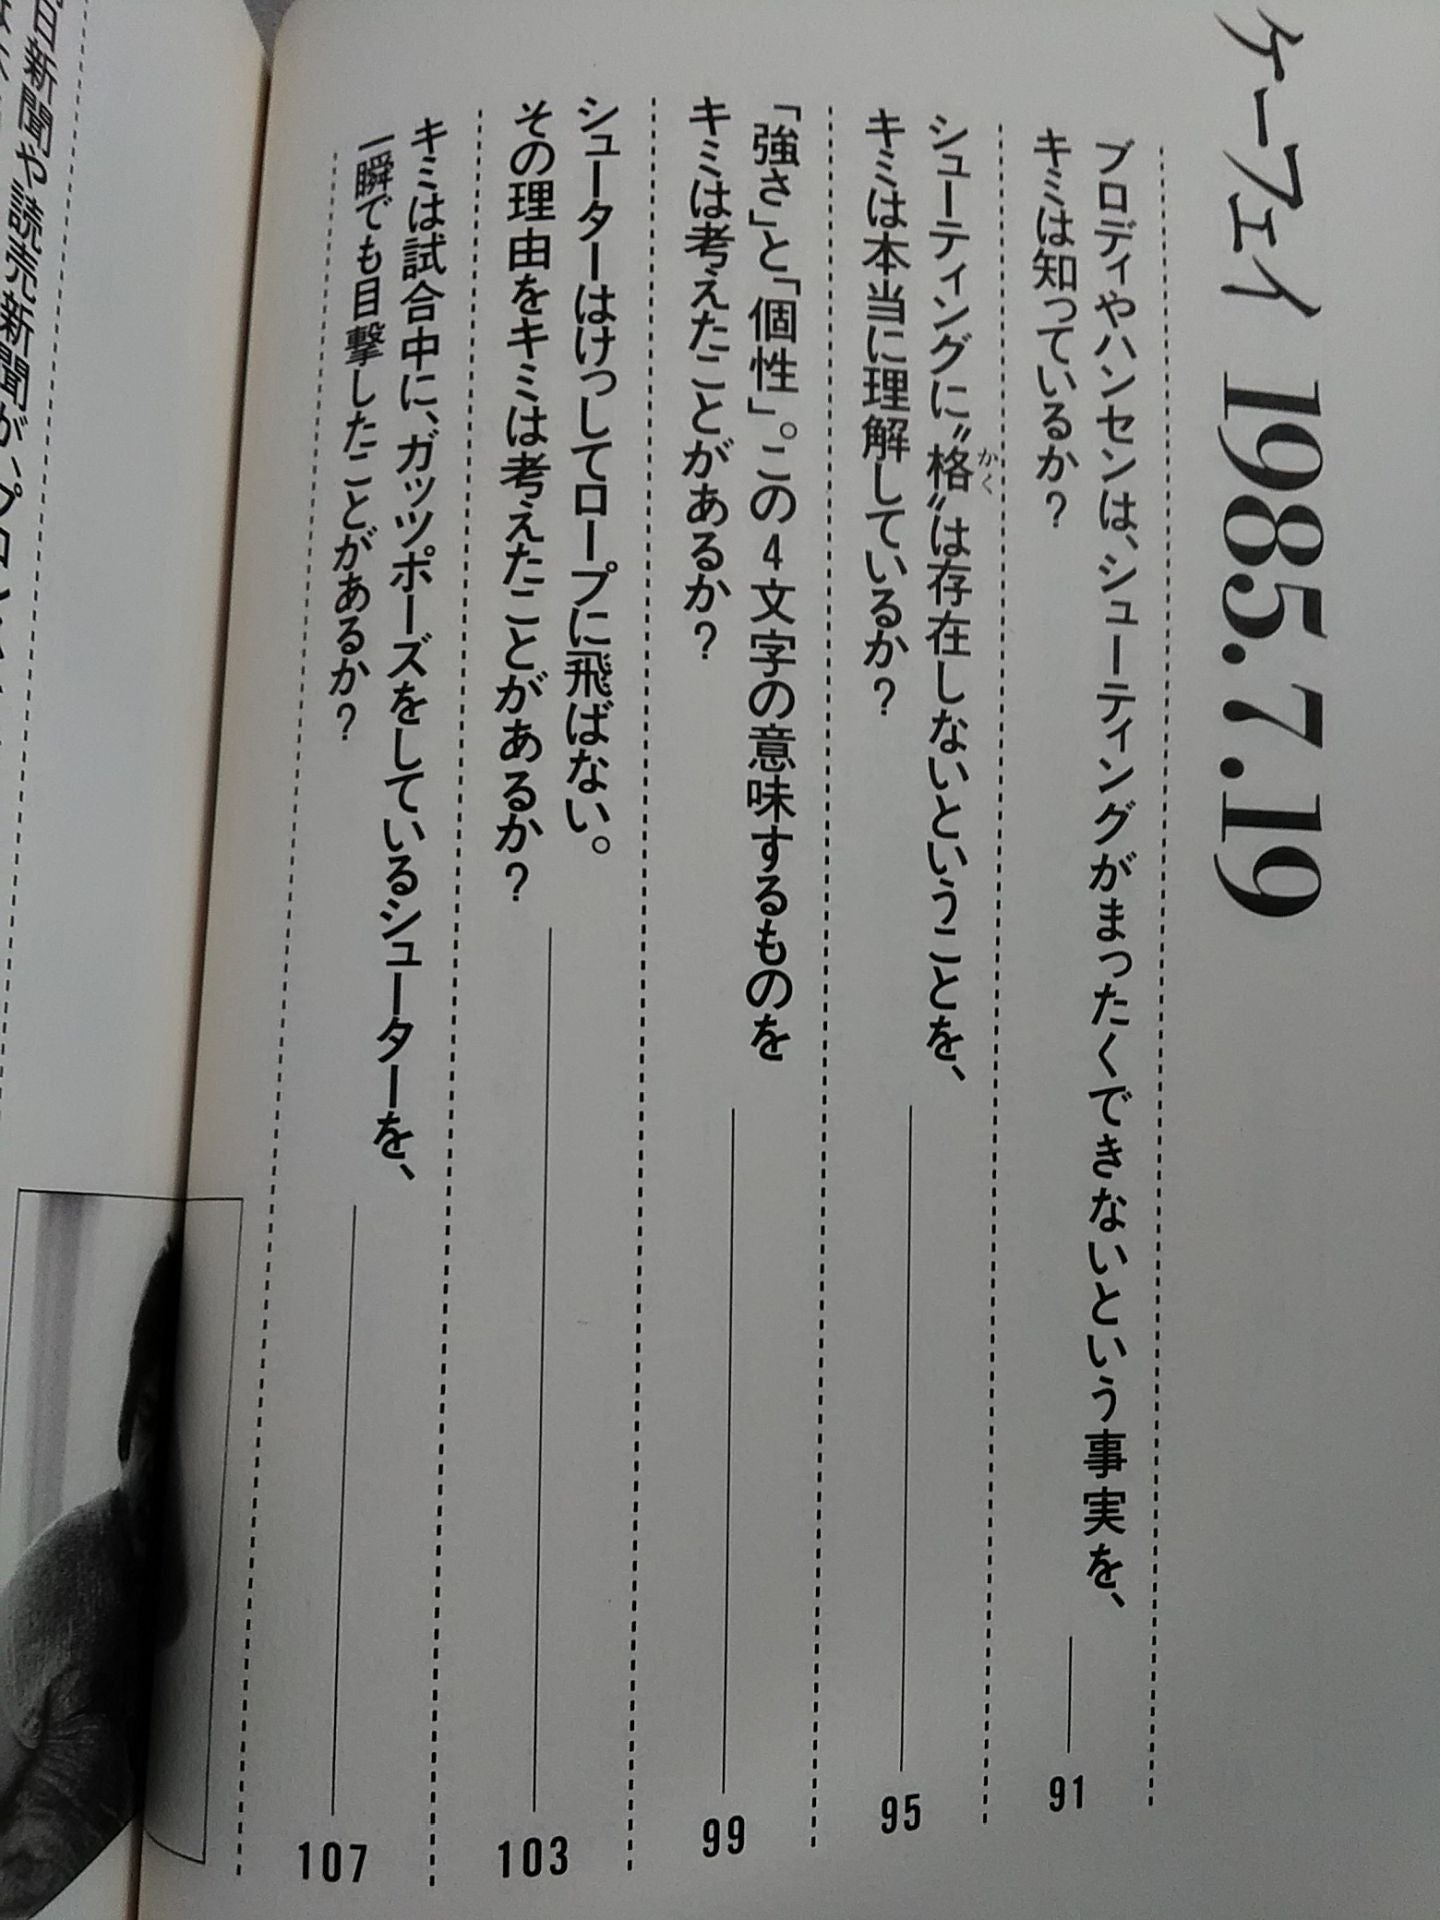 ケーフェイ 1985.7.19
ブロディやハンセンは、シューティングがまったくできないという事実を、
キミは知っているか？ 91
シューティングに〝格〟は存在しないということを、
かく
キミは本当に理解しているか？ 95
「強さ」と「個性」。この4文字の意味するものを
キミは考えたことがあるか？ 99
シューターはけっしてロープに飛ばない。
その理由をキミは考えたことがあるか？ 103
キミは試合中に、ガッツポーズをしているシューターを、
一瞬でも目撃したことがあるか？ 107
日新聞や読売新聞が、プロレス